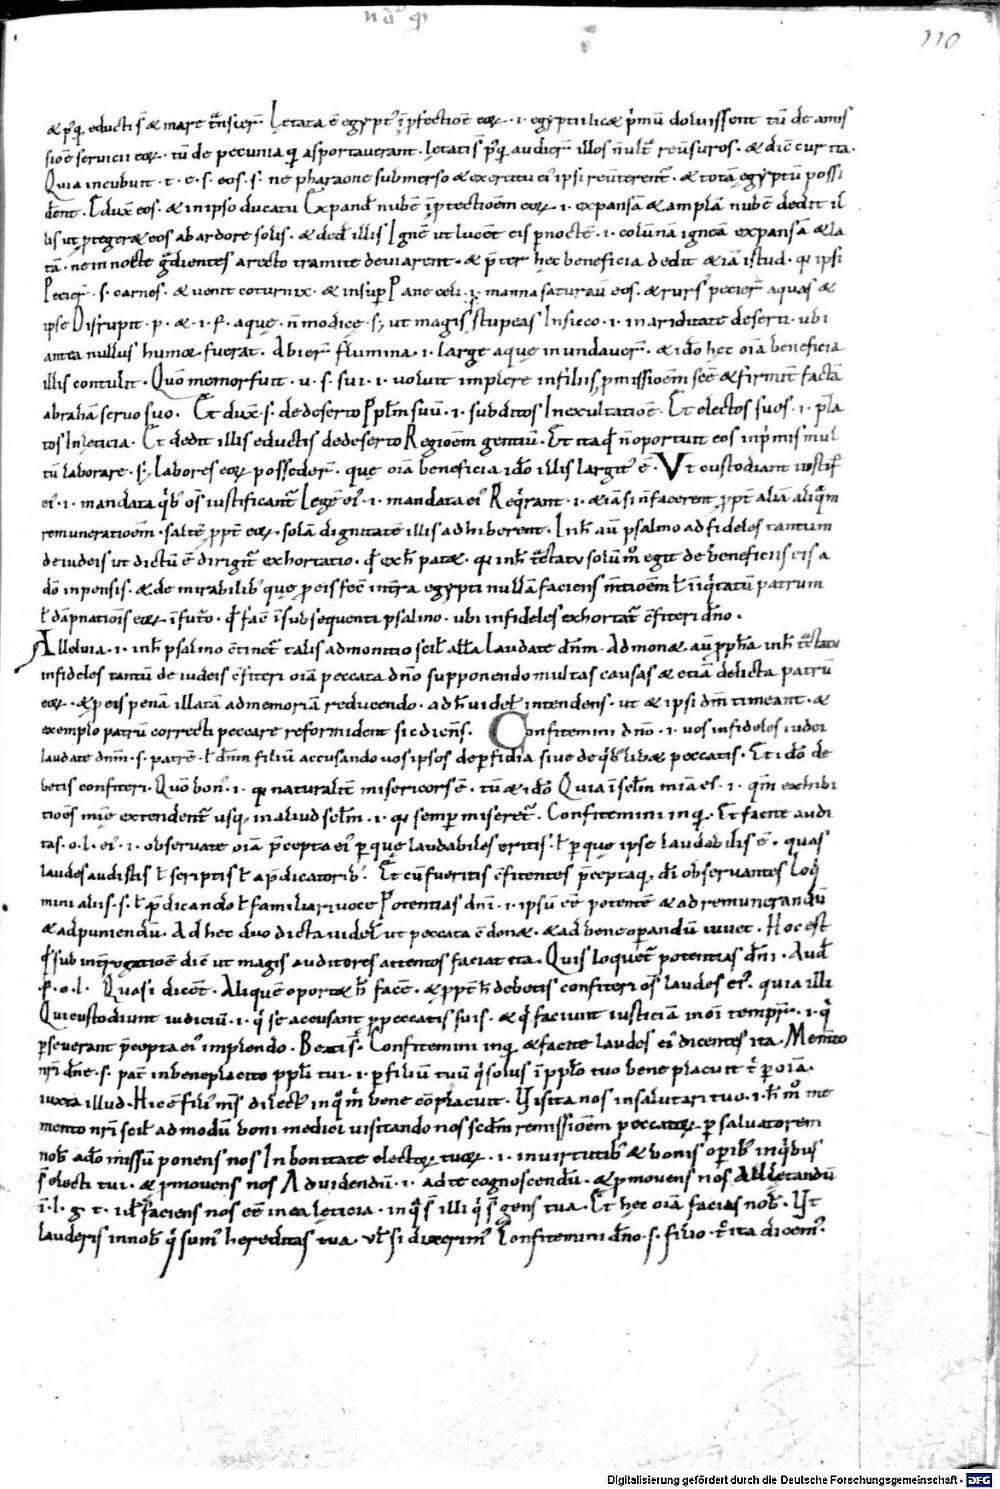 110
& p̄q̄ educti s̄ & mare t̄nsier̄. Letata ē egypt' ī pfectiōe eoꝝ. i. egyptii licæ p̄mū doluissent tū de amis
siōe servicii eoꝝ. tū de pecunia q̄ asportaverant. letati s̄ p̄q̄ audier̄ illos n̄ ult̄ reūsuros. & dic̄ cur ita.
Quia incubuit. t. e. s. eos. s. ne pharaone submerso & exercitu ei' ipsi reūterent̄. & totā egyptū possi
dent. Edux̄ eos. & in ipso ducatu Expand̄ nubē ī ptectioēm eoꝝ. i. expansā & amplā nubē dedit il
lis ut ptegeræ eos ab ardore solis. & ded̄ illis Ignē ut lucēt eis p noctē. i. colūnā igneā expansā & la
tā. ne in nocte ḡdientes a recto tramite deviarent. & p̄ter hec beneficia dedit & iā istud. qꝛ ipsi
Pecier̄. s. carnes. & venit coturnix. & insup Pane celi. i. manna saturaū eos. & rurs' pecier̄ aquas &
ipse Disrupit. p. & i. f. aquę. n̄ modice s; ut magis stupeas In sicco. i. in ariditate deserti. ubi
antea nullus humor fuerat. Abier̄ flumina. i. large aquę inundaver̄. & idō hec oīa beneficia
illis contulit. Quō memor fuit. v. s. sui. i. voluit implere in filiis pmissioēm seē & firmit̄ factā
abrahā servo suo. Et dux̄. s. de deserto Pplm̄ suū. i. subditos In exultatiōe. Et electos suos. i. p̄la
tos In leticia. Et dedit illis eductis de deserto Regioēm gentiū. Et itaq̄ n̄ oportuit eos inp̄mis mul
tū laborare. s; labores eoꝝ possēder̄. quę oīa beneficia idō illis largit' ē. Ut custodiant iustif̄
ei'. i. mandata q̄b' os̄ iustificant̄. Legē ei'. i. mandata ei' Req̄rant. i. & iā si n̄ facerent ppt̄ aliā aliq̄m
remuneratioēm. saltē ppt̄ eoꝝ. solā dignitatē illis adhiberent. In h̄ aū psalmo ad fideles tantum
de iudeis ut dictū ē dirigit̄ exhortatio. q̄ ex h̄ patæ. qꝛ in h̄ t̄ctatu solūm̊ egit de beneficiis eis a
dō inpensis. & de mirabilib' quę p eis fec̄ in t̄ra egypti nullā faciens m̄tioēm ł iniq̄tatū patrum
ł dāpnatiōis eoꝝ ī futuro. q̄ fac̄ ī subsequenti psalmo. ubi infideles exhortat̄ c̄fiteri dn̄o.
Alleluia. i. in h̄ psalmo c̄tinet̄ talis admonitio scil̄ all̄a Laudate dn̄m. Admonæ aū ppħa in h̄ t̄ctatu
infideles tantū de iudeis c̄fiteri oīa peccata dn̄o supponendo multas causas & etiā delicta patrū
eoꝝ. & p eis penā illatā ad memoriā reducendo. ad h̄ videl̄ intendens. ut & ipsi dn̄m timeant. &
exemplo patrū correcti peccare reformident sic dicens. Confitemini dn̄o. i. vos infideles iudei
laudate dn̄m. s. patrē. ł dn̄m filiū accusando vos ipsos de pfidia sive de q̄b' libæ peccatis. Et idō de
betis confiteri. Quō bon'. i. qꝛ naturalit̄ misericors ē. tū & idō Quia ī sclm̄ mīa ei'. i. q̄m exhibi
tioēs mīę extendent̄ usq; in aliud sclm̄. i. qꝛ semp miseret̄. Confitemini inq̄. Et facite audi
tas. o. l. ei'. i. observate oīa p̄cepta ei' p quę laudabiles eritis. ł p quę ipse laudabilis ē. quas
laudes audistis ł scriptis ł a p̄dicatorib'. Et cū fueritis c̄fitentes p̄ceptaq; dī observantes Loq̄
mini aliis. s. ł p̄dicando ł familiari voce Potentias dn̄i. i. ipsū eē potentē & ad remunerandū
& ad puniendū. Ad hec duo dicta videl̄ ut peccata c̄donæ. & ad bene opandū iuvet. Hoc est
q̄ sub int̄rogatiōe dic̄ ut magis auditores attentos faciat ita. Quis loquet̄ potentias dn̄i. Aud̄
f. o. l. Quasi dicēt. Aliquē oportæ h̄ facē. & ppt̄ h̄ debetis confiteri os̄ laudes ei'. quia illi
Qui custodiunt iudiciū. i. q̄ se accusant p peccatis suis. & q̄ faciunt iusticiā in oī tempr̄. i. q̄
pseverant p̄cepta ei' implendo. Beati s̄. Confitemini inq̄ & facite laudes ei' dicentes ita. Memto
nr̄i dn̄e. s. pat̄ in beneplacito ppl̄i tui. i. p filiū tuū q̄ solus ī pplo tuo bene placuit t̄ p oīa.
iuxta illud. Hic ē fili' m̄s dilect' in quo m̄ bene cōplacuit. Visita nos in salutari tuo. i. h̄ m̊ me
mento nr̄i scil̄ ad modū boni medici visitando nos scdm̄ remissioēm peccatoꝝ. p salvatorem
nob̄ a dō missū ponens nos In bonitate electoꝝ tuoꝝ. i. in virtutib' & bonis opib' in q̄bus
s̄ electi tui. & pmovens nos Ad videndū. i. ad te cognoscendū. & pmovens nos Ad letandū
ī. l. g. t. i. dł faciens nos eē in ea leticia. in q̄ s̄ illi q̄ s̄ gens tua. Et hec oīa facias nob̄. Ut
lauderis in nob̄ q̄ sum' hereditas tua. vł si dixerim' Confitemini dn̄o. s. filio. t̄c ita dicem'.
Digitalisierung gefördert durch die Deutsche Forschungsgemeinschaft - DFG